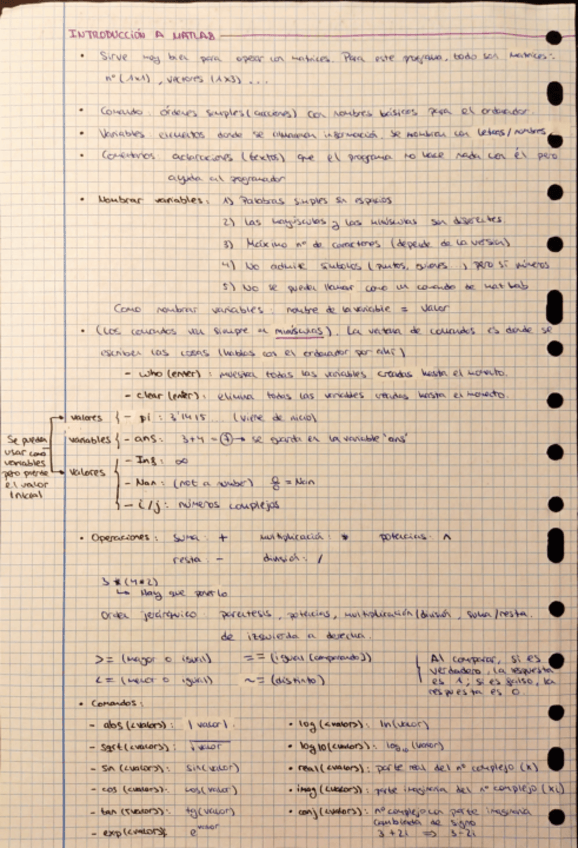 INTRODUCCIÓN A MATLAB
• Sirve muy bien para operar con matrices. Para este programa, todo son matrices:
nº (1x1), vectores (1x3) ...
• Comando: órdenes simples (acciones) con nombres básicos para el ordenador.
• Variables elementos donde se almacenan información. Se nombran con letras/nombres
• Comentarios aclaraciones (textos) que el programa no hace nada con él pero
ayuda al programador
• Nombrar variables: 1) Palabras simples sin espacios
2) Las mayúsculas y las minúsculas son diferentes.
3) Máximo nº de caracteres (depende de la versión)
4) No admite símbolos (puntos, guiones...) pero sí números
5) No se pueden llamar como un comando de matlab
Como nombrar variables: nombre de la variable = valor
• (Los comandos van siempre en minúsculas). La ventana de comandos es donde se
escriben las cosas (hablas con el ordenador por ahí)
- who (enter): muestra todas las variables creadas hasta el momento.
- clear (enter): elimina todas las variables creadas hasta el momento.
valores { - pi: 3'1415... (viene de inicio)
variables { - ans: 3+4 = 7 → se guarda en la variable 'ans'
valores { - Inf: ∞
- Nan: (not a number) 0/0 = Nan
- i/j: números complejos
Se pueden
usar como
variables
pero pierde
el valor
inicial
• Operaciones: suma: + multiplicación: * potencias: ^
resta: - división: /
3 * (4*2)
↳ Hay que ponerlo
Orden jerárquico: paréntesis, potencias, multiplicación/división, suma/resta.
de izquierda a derecha.
>= (mayor o igual) == (igual (comparando))
<= (menor o igual) ~= (distinto)
Al comparar, si es
verdadero, la respuesta
es 1; si es falso, la
respuesta es 0.
• Comandos:
- abs(<valor>): |valor| • log(<valor>): ln(valor)
- sqrt(<valor>): √valor • log10(<valor>): log₁₀(valor)
- sin(<valor>): sin(valor) • real(<valor>): parte real del nº complejo (K)
- cos(<valor>): cos(valor) • imag(<valor>): parte imaginaria del nº complejo (Ki)
- tan(<valor>): tg(valor) • conj(<valor>): nº complejo con parte imaginaria
cambiada de signo
- exp(<valor>): e^valor 3+2i => 3-2i